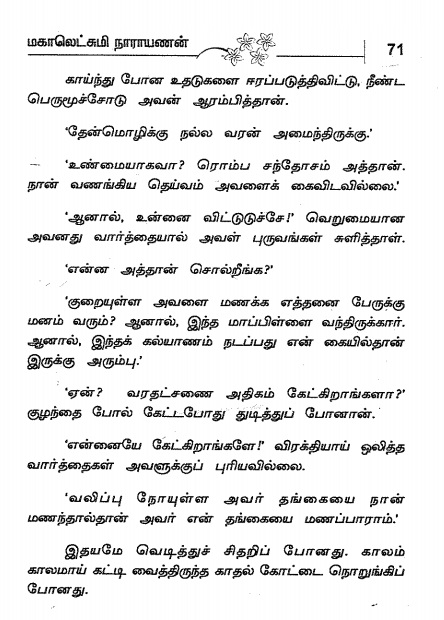 மகாலெட்சுமி நாராயணன்
71
காய்ந்து போன உதடுகளை ஈரப்படுத்திவிட்டு, நீண்ட
பெருமூச்சோடு அவன் ஆரம்பித்தான்.
'தேன்மொழிக்கு நல்ல வரன் அமைந்திருக்கு.'
'உண்மையாகவா? ரொம்ப சந்தோசம் அத்தான்.
நான் வணங்கிய தெய்வம் அவளைக் கைவிடவில்லை.'
'ஆனால், உன்னை விட்டுடுச்சே!' வெறுமையான
அவனது வார்த்தையால் அவள் புருவங்கள் சுளித்தாள்.
'என்ன அத்தான் சொல்றீங்க?'
'குறையுள்ள அவளை மணக்க எத்தனை பேருக்கு
மனம் வரும்? ஆனால், இந்த மாப்பிள்ளை வந்திருக்கார்.
ஆனால், இந்தக் கல்யாணம் நடப்பது என் கையில்தான்
இருக்கு அரும்பு.'
'ஏன்? வரதட்சணை அதிகம் கேட்கிறாங்களா?'
குழந்தை போல் கேட்டபோது துடித்துப் போனான்.
'என்னையே கேட்கிறாங்களே!' விரக்தியாய் ஒலித்த
வார்த்தைகள் அவளுக்குப் புரியவில்லை.
'வலிப்பு நோயுள்ள அவர் தங்கையை நான்
மணந்தால்தான் அவர் என் தங்கையை மணப்பாராம்.'
இதயமே வெடித்துச் சிதறிப் போனது. காலம்
காலமாய் கட்டி வைத்திருந்த காதல் கோட்டை நொறுங்கிப்
போனது.